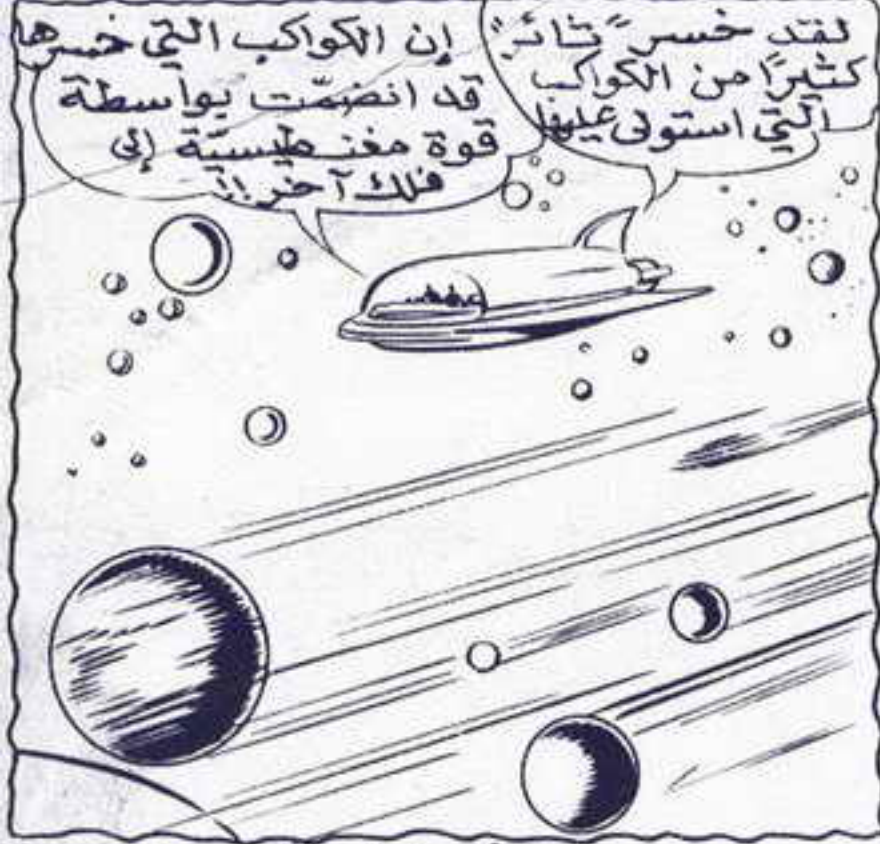 لقد خسر "تائر"
كثيرًا من الكواكب
التي استولى عليها
إن الكواكب التي خسرها
قد انضمّت بواسطة
قوة مغنطيسيّة إلى
فلك آخر!!